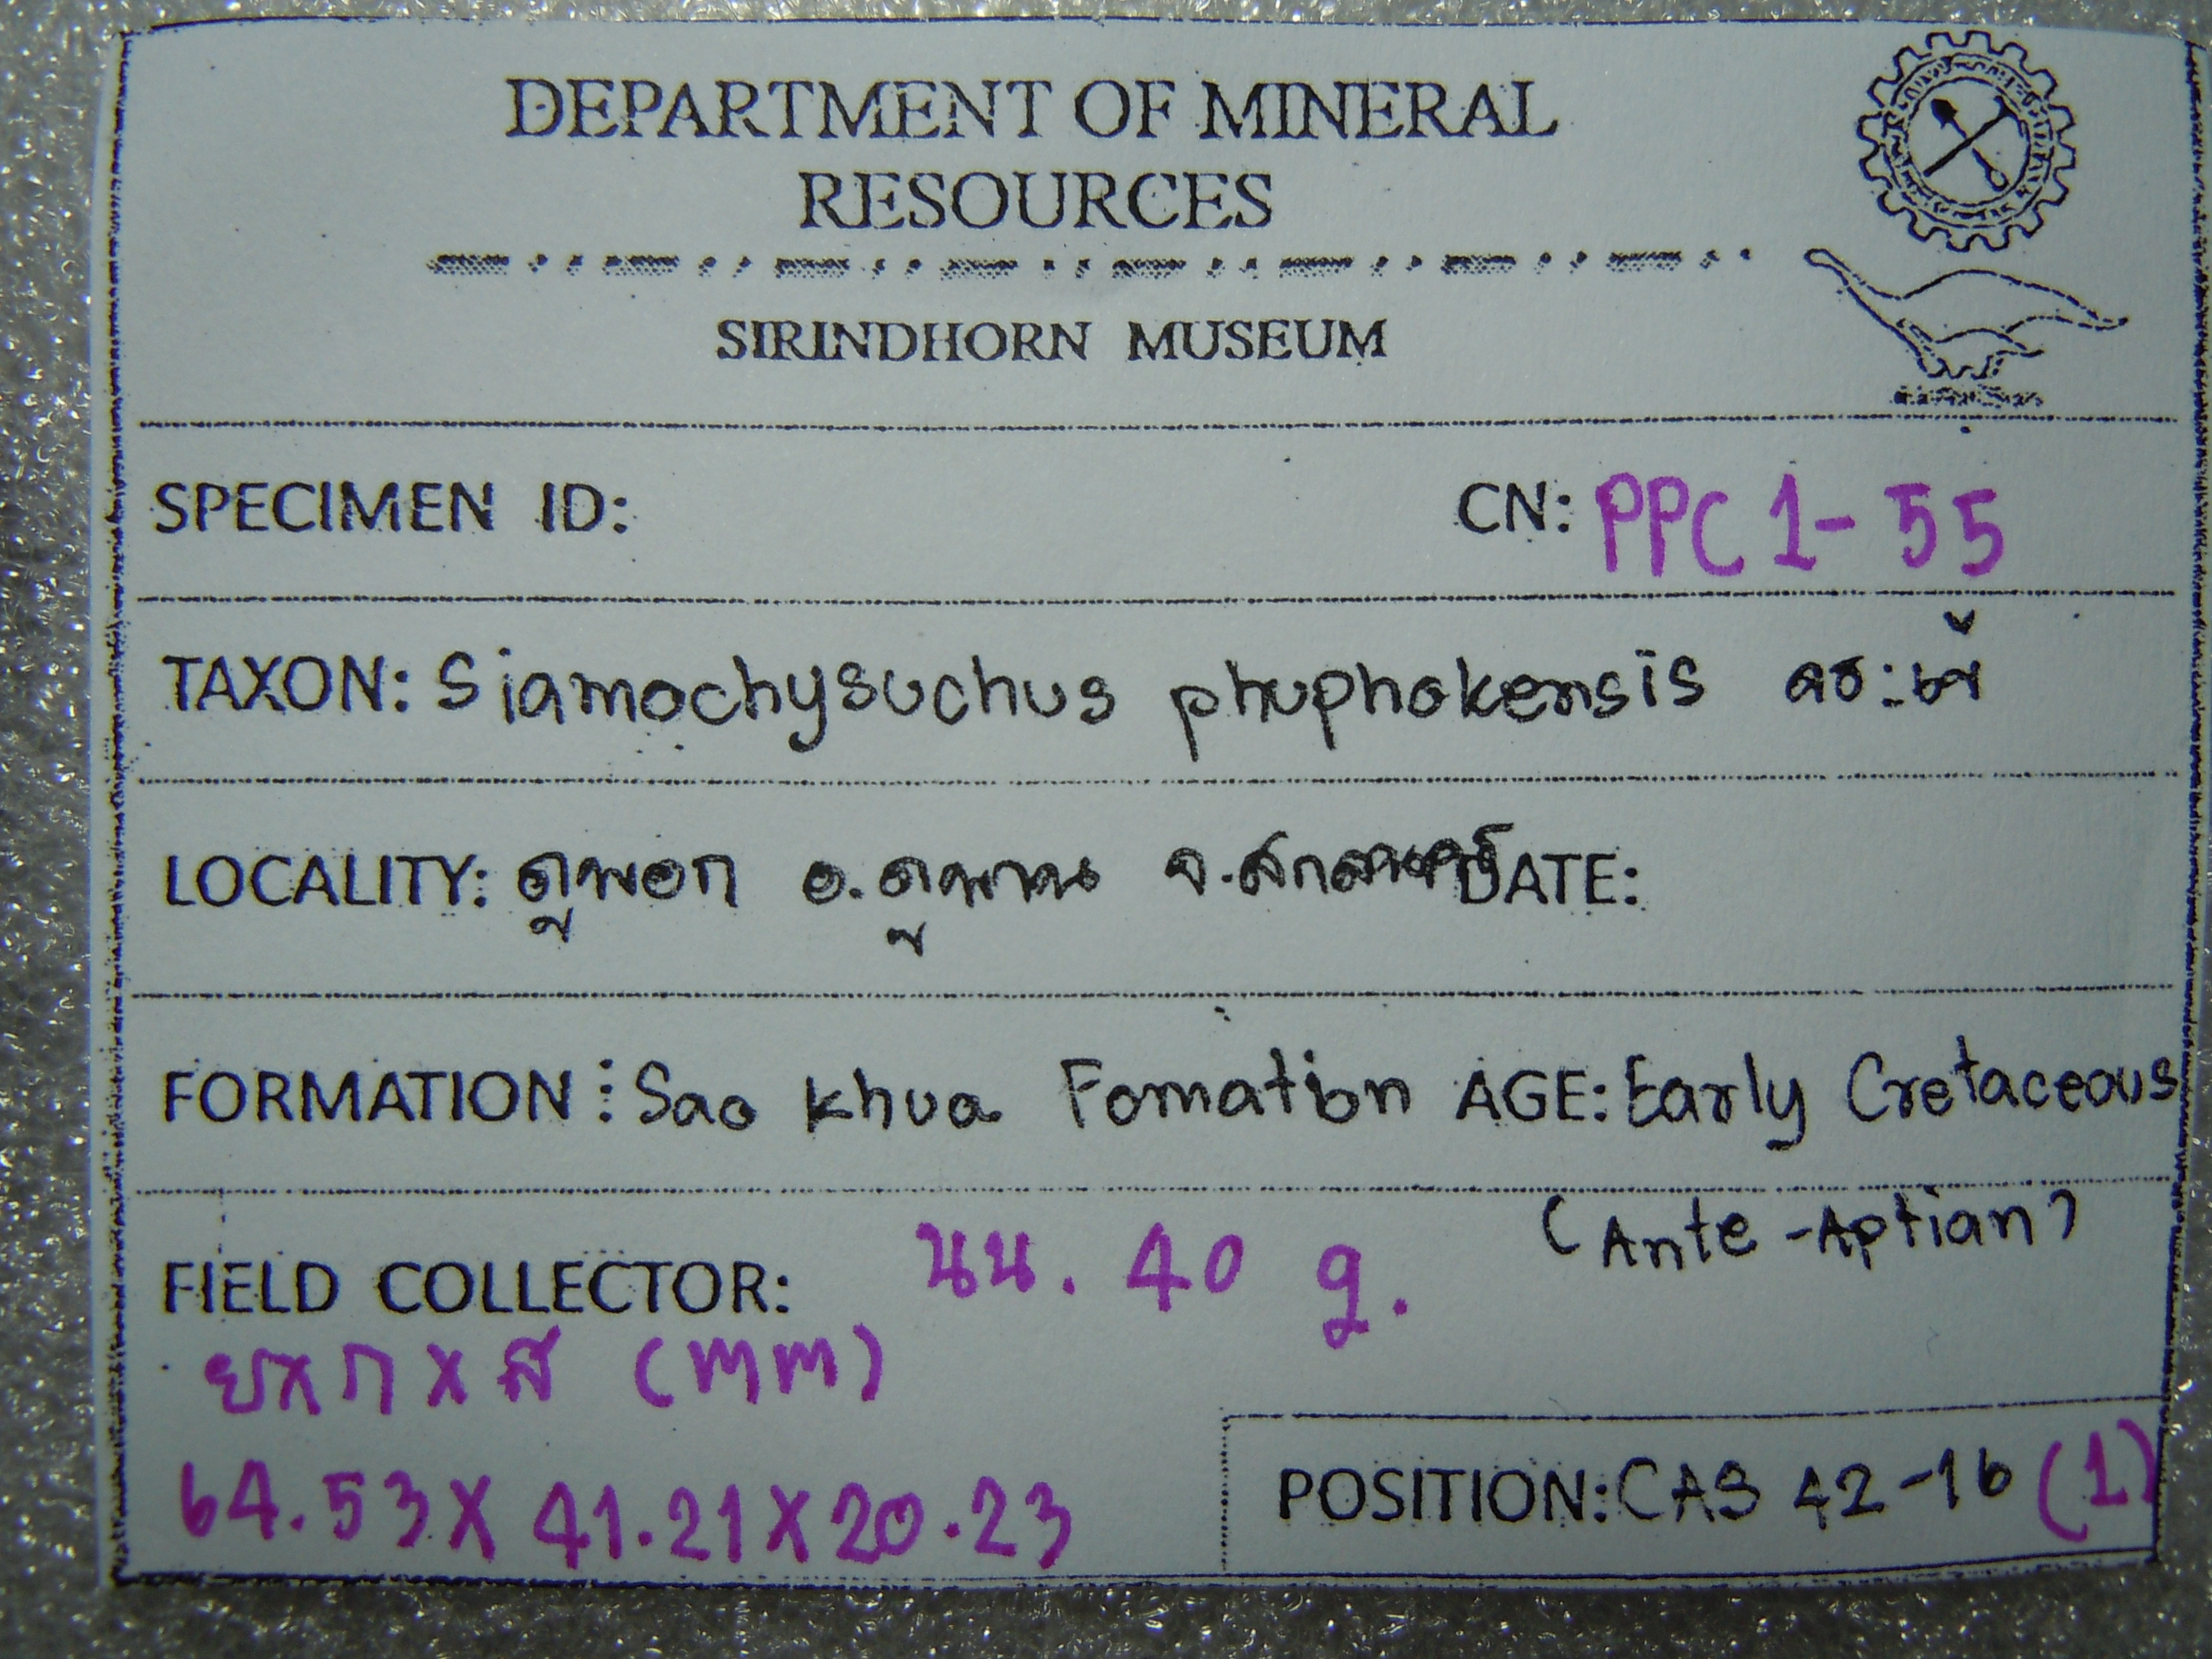 DEPARTMENT OF MINERAL
RESOURCES
SIRINDHORN MUSEUM
SPECIMEN ID: CN: PPC 1-55
TAXON: Siamochysuchus phuphokensis จระเข้
LOCALITY: ภูพอก อ.ภูพาน จ.สกลนคร DATE:
FORMATION: Sao Khua Fomation AGE: Early Cretaceous
(Ante-Aptian)
FIELD COLLECTOR: นน. 40 g.
ยxกxส (mm)
64.53x41.21x20.23
POSITION: CAS 42-16 (1)